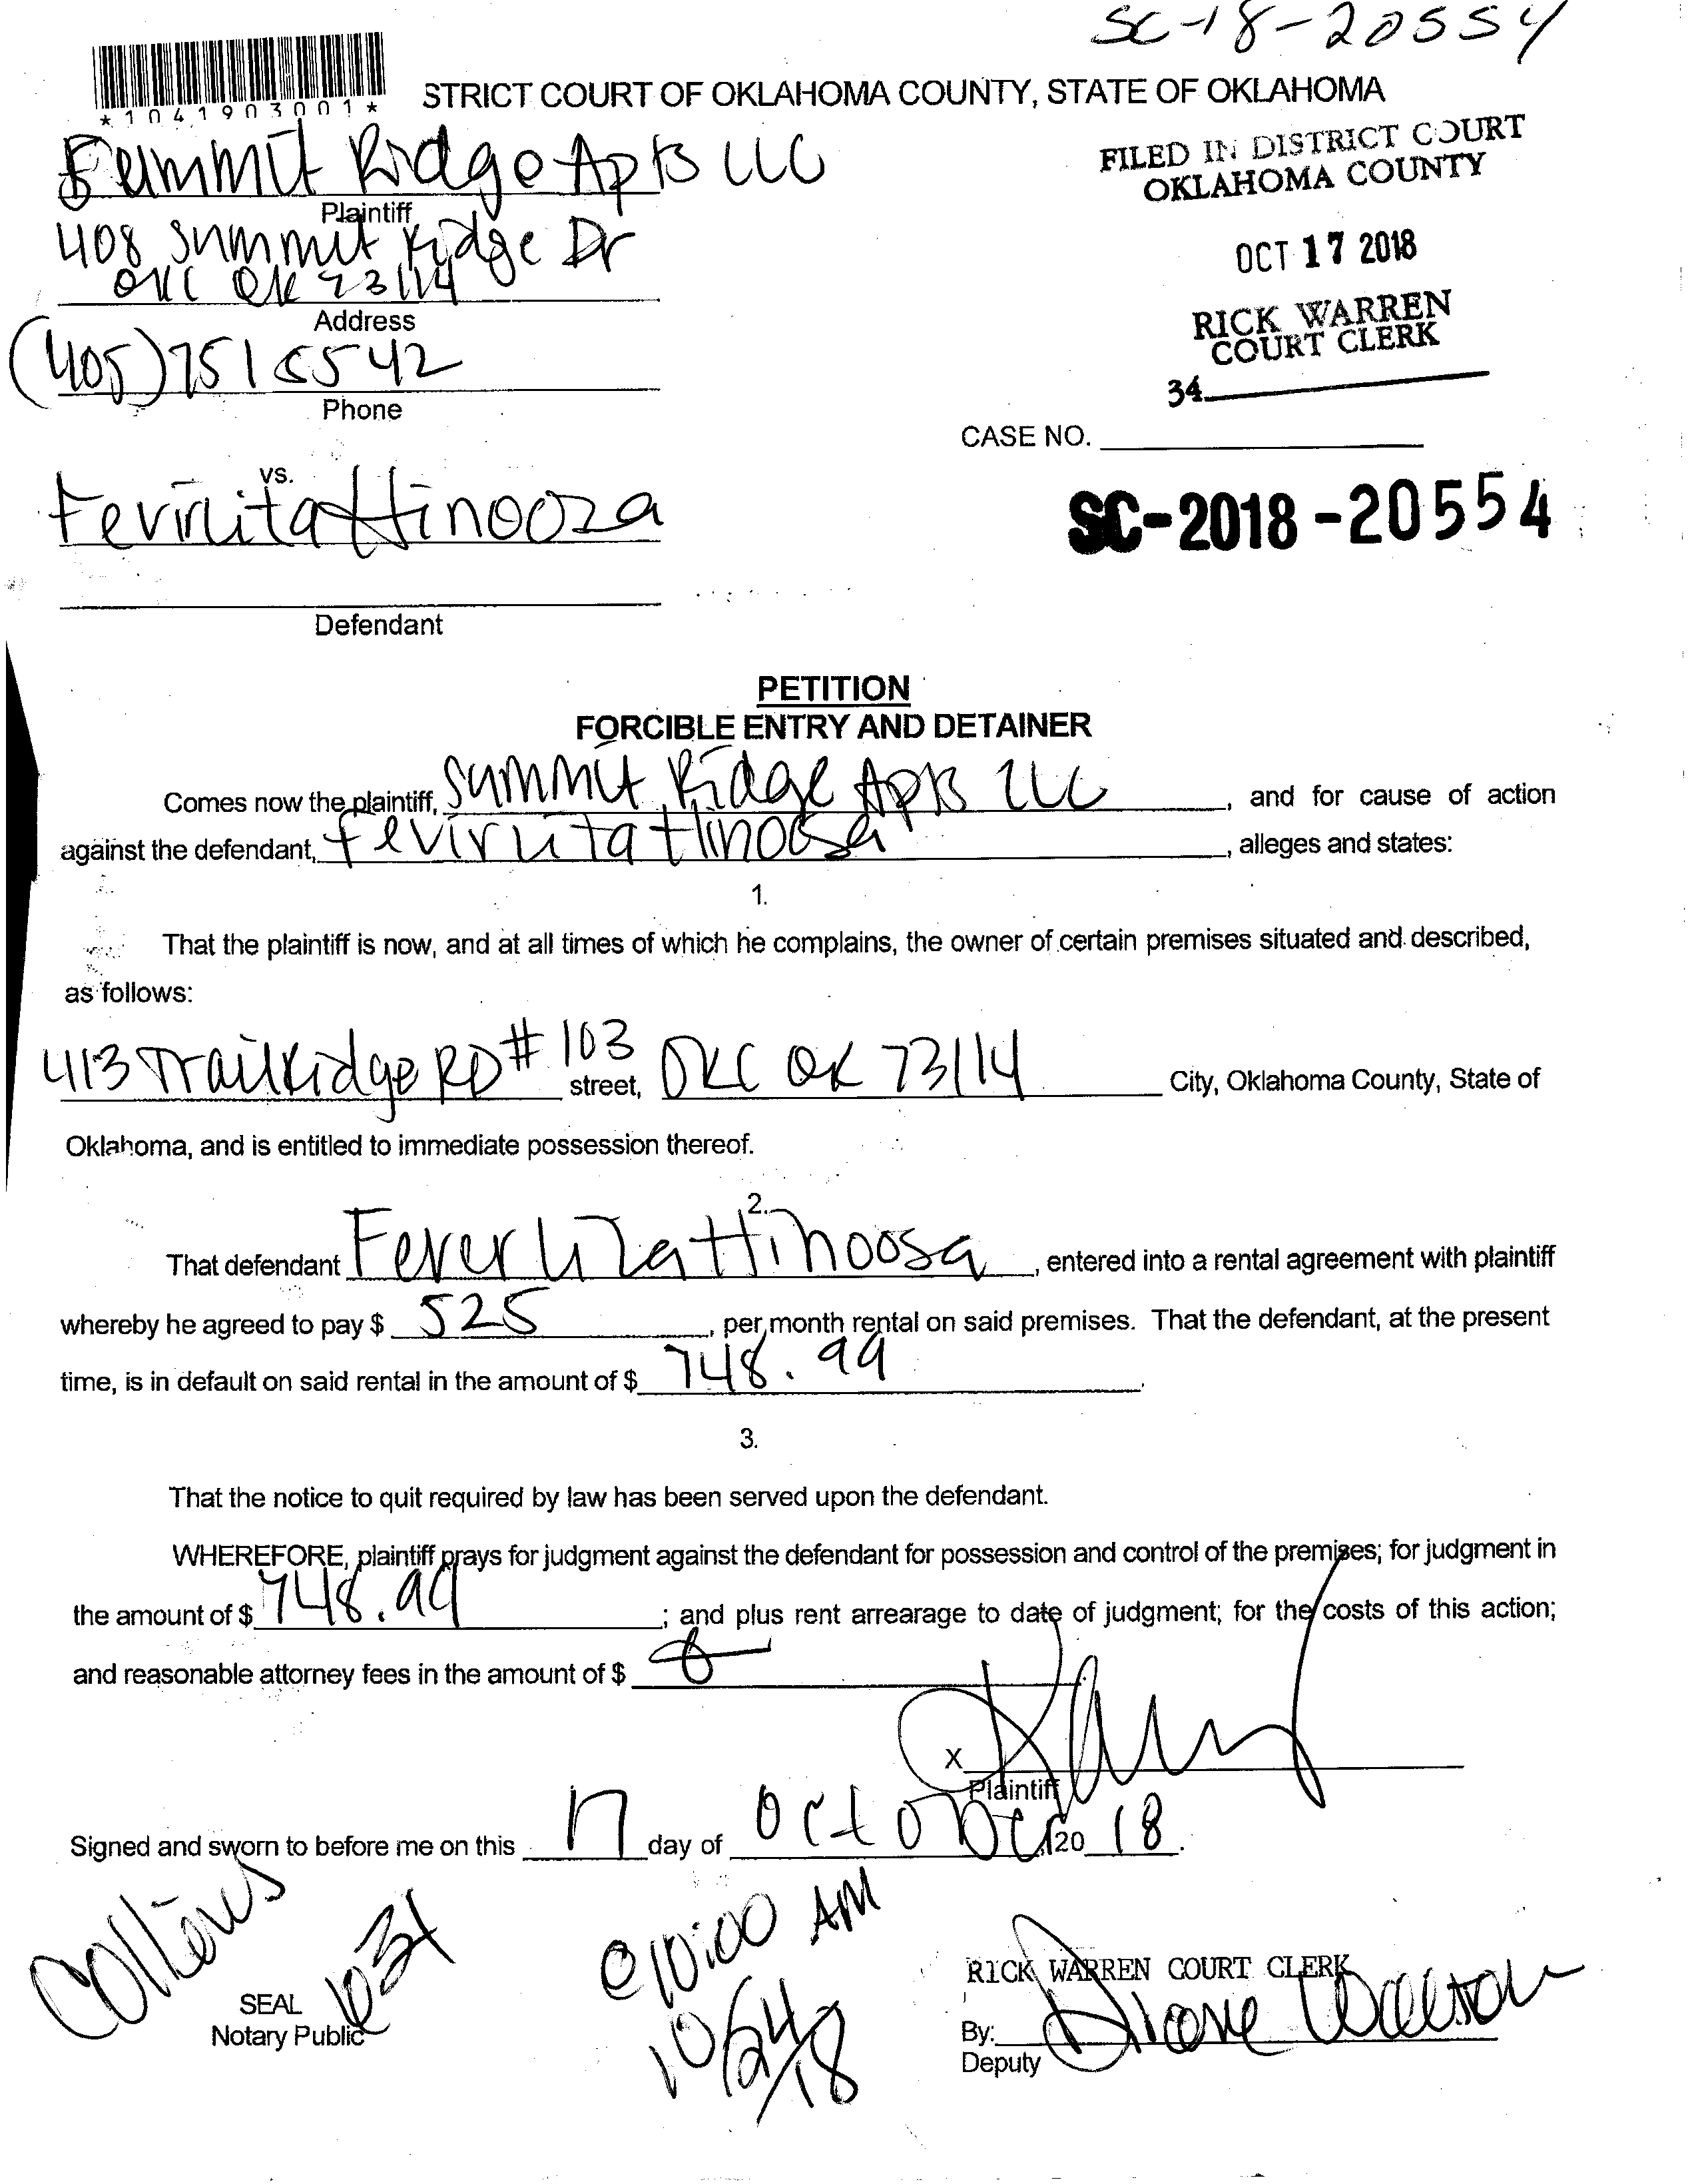 SC-18-20554
*1041903001*
STRICT COURT OF OKLAHOMA COUNTY, STATE OF OKLAHOMA
Summit Ridge Apts LLC
Plaintiff
408 Summit Ridge Dr
OKC OK 73114
Address
(405) 751 5542
Phone
FILED IN DISTRICT COURT
OKLAHOMA COUNTY
OCT 17 2018
RICK WARREN
COURT CLERK
34
CASE NO.
SC-2018-20554
vs.
Defendant
PETITION
FORCIBLE ENTRY AND DETAINER
Comes now the plaintiff, Summit Ridge Apts LLC, and for cause of action
against the defendant, , alleges and states:
1.
That the plaintiff is now, and at all times of which he complains, the owner of certain premises situated and described,
as follows:
413 Trail Ridge RD #103 street, OKC OK 73114 City, Oklahoma County, State of
Oklahoma, and is entitled to immediate possession thereof.
2.
That defendant , entered into a rental agreement with plaintiff
whereby he agreed to pay $ 525, per month rental on said premises. That the defendant, at the present
time, is in default on said rental in the amount of $ 748.99.
3.
That the notice to quit required by law has been served upon the defendant.
WHEREFORE, plaintiff prays for judgment against the defendant for possession and control of the premises; for judgment in
the amount of $ 748.99; and plus rent arrearage to date of judgment; for the costs of this action;
and reasonable attorney fees in the amount of $
X
Plaintiff
Signed and sworn to before me on this 17 day of October, 20 18.
SEAL
Notary Public
@10:00 AM
10/24/18
RICK WARREN COURT CLERK
By: Diane
Deputy